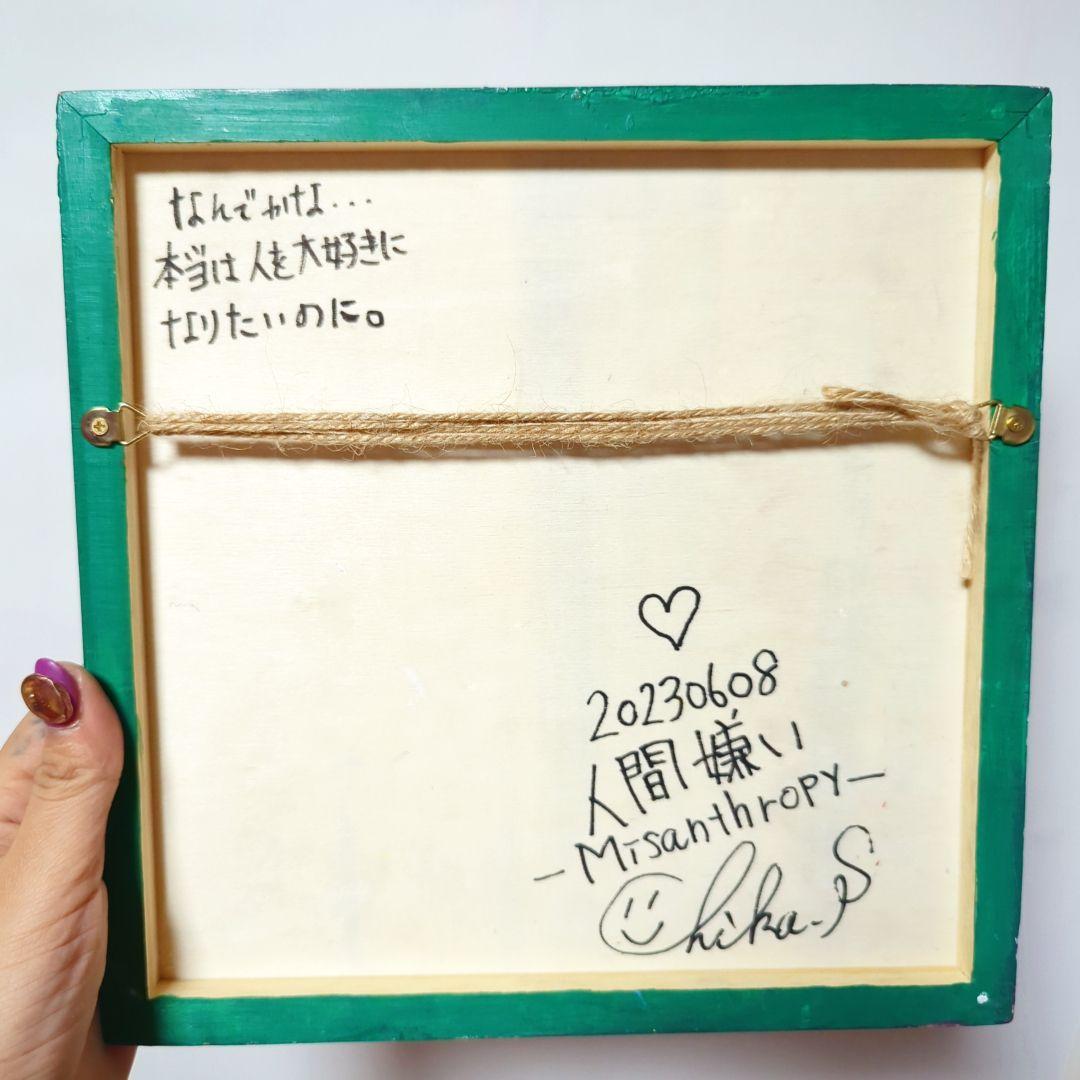 なんでかな...
本当は人を大好きに
なりたいのに。
20230608
人間嫌い
-Misanthropy-
Chika.S